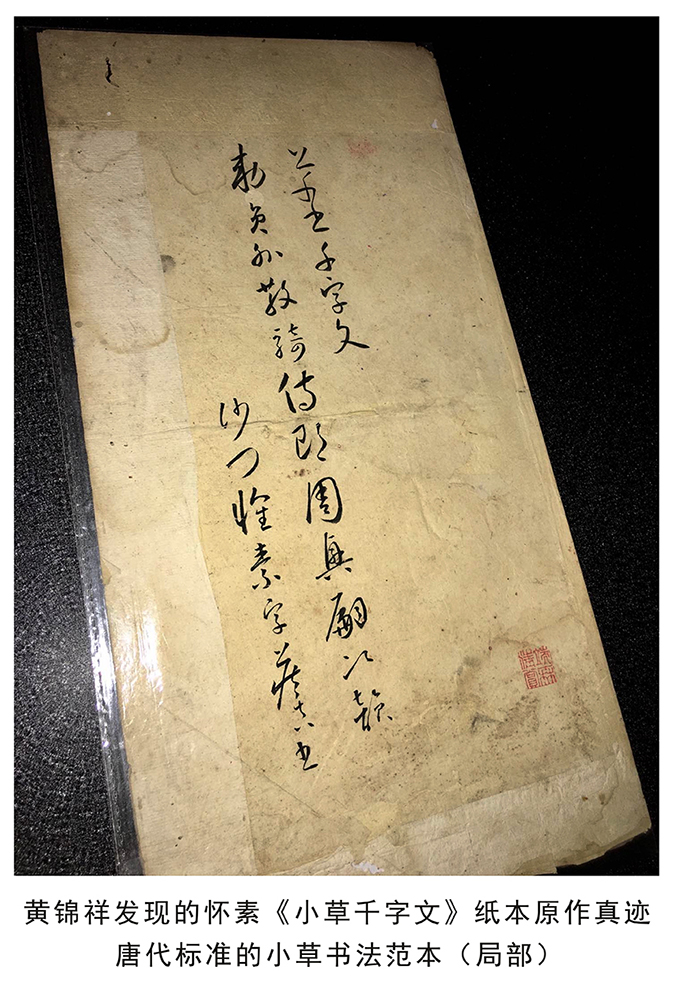 千字文
勅員外散騎侍郎周興嗣次韻
沙門懷素字藏真書
黄锦祥发现的怀素《小草千字文》纸本原作真迹
唐代标准的小草书法范本（局部）